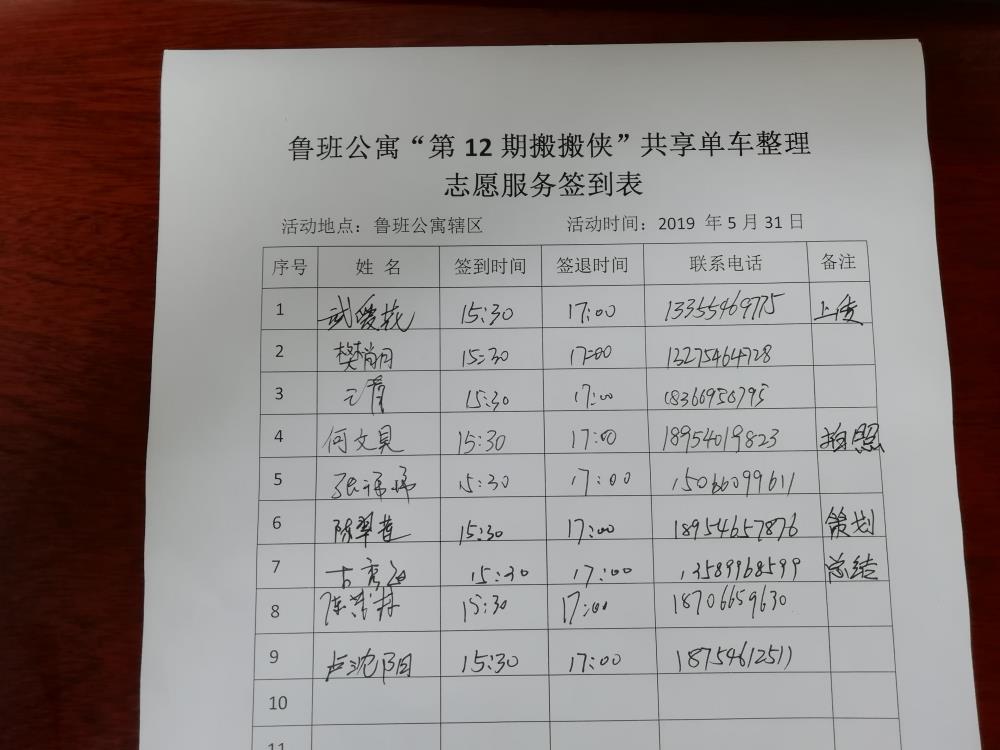 鲁班公寓“第 12 期搬搬侠”共享单车整理
志愿服务签到表
活动地点：鲁班公寓辖区 活动时间：2019 年 5 月 31 日
序号 姓 名 签到时间 签退时间 联系电话 备注
1 武爱花 15:30 17:00 13355469775 上传
2 樊尚月 15:30 17:00 13275464728
3 15:30 17:00 18366950795
4 何文具 15:30 17:00 18954019823 拍照
5 15:30 17:00 15066099611
6 陈翠莲 15:30 17:00 18954657876 策划
7 15:30 17:00 13589968599 总结
8 15:30 17:00 18706659630
9 卢沈阳 15:30 17:00 18754612511
10
11